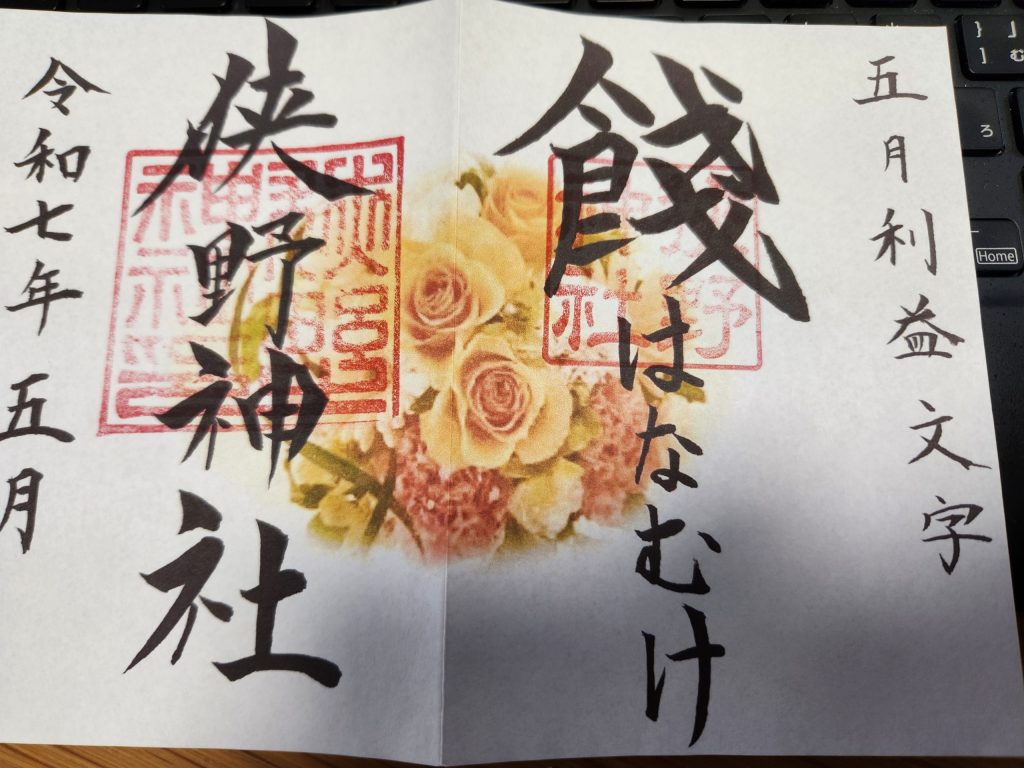 五月利益文字
餞
はなむけ
狭野
神社
狭野神社
令和七年 五月
} 」
] む
ろ
Home